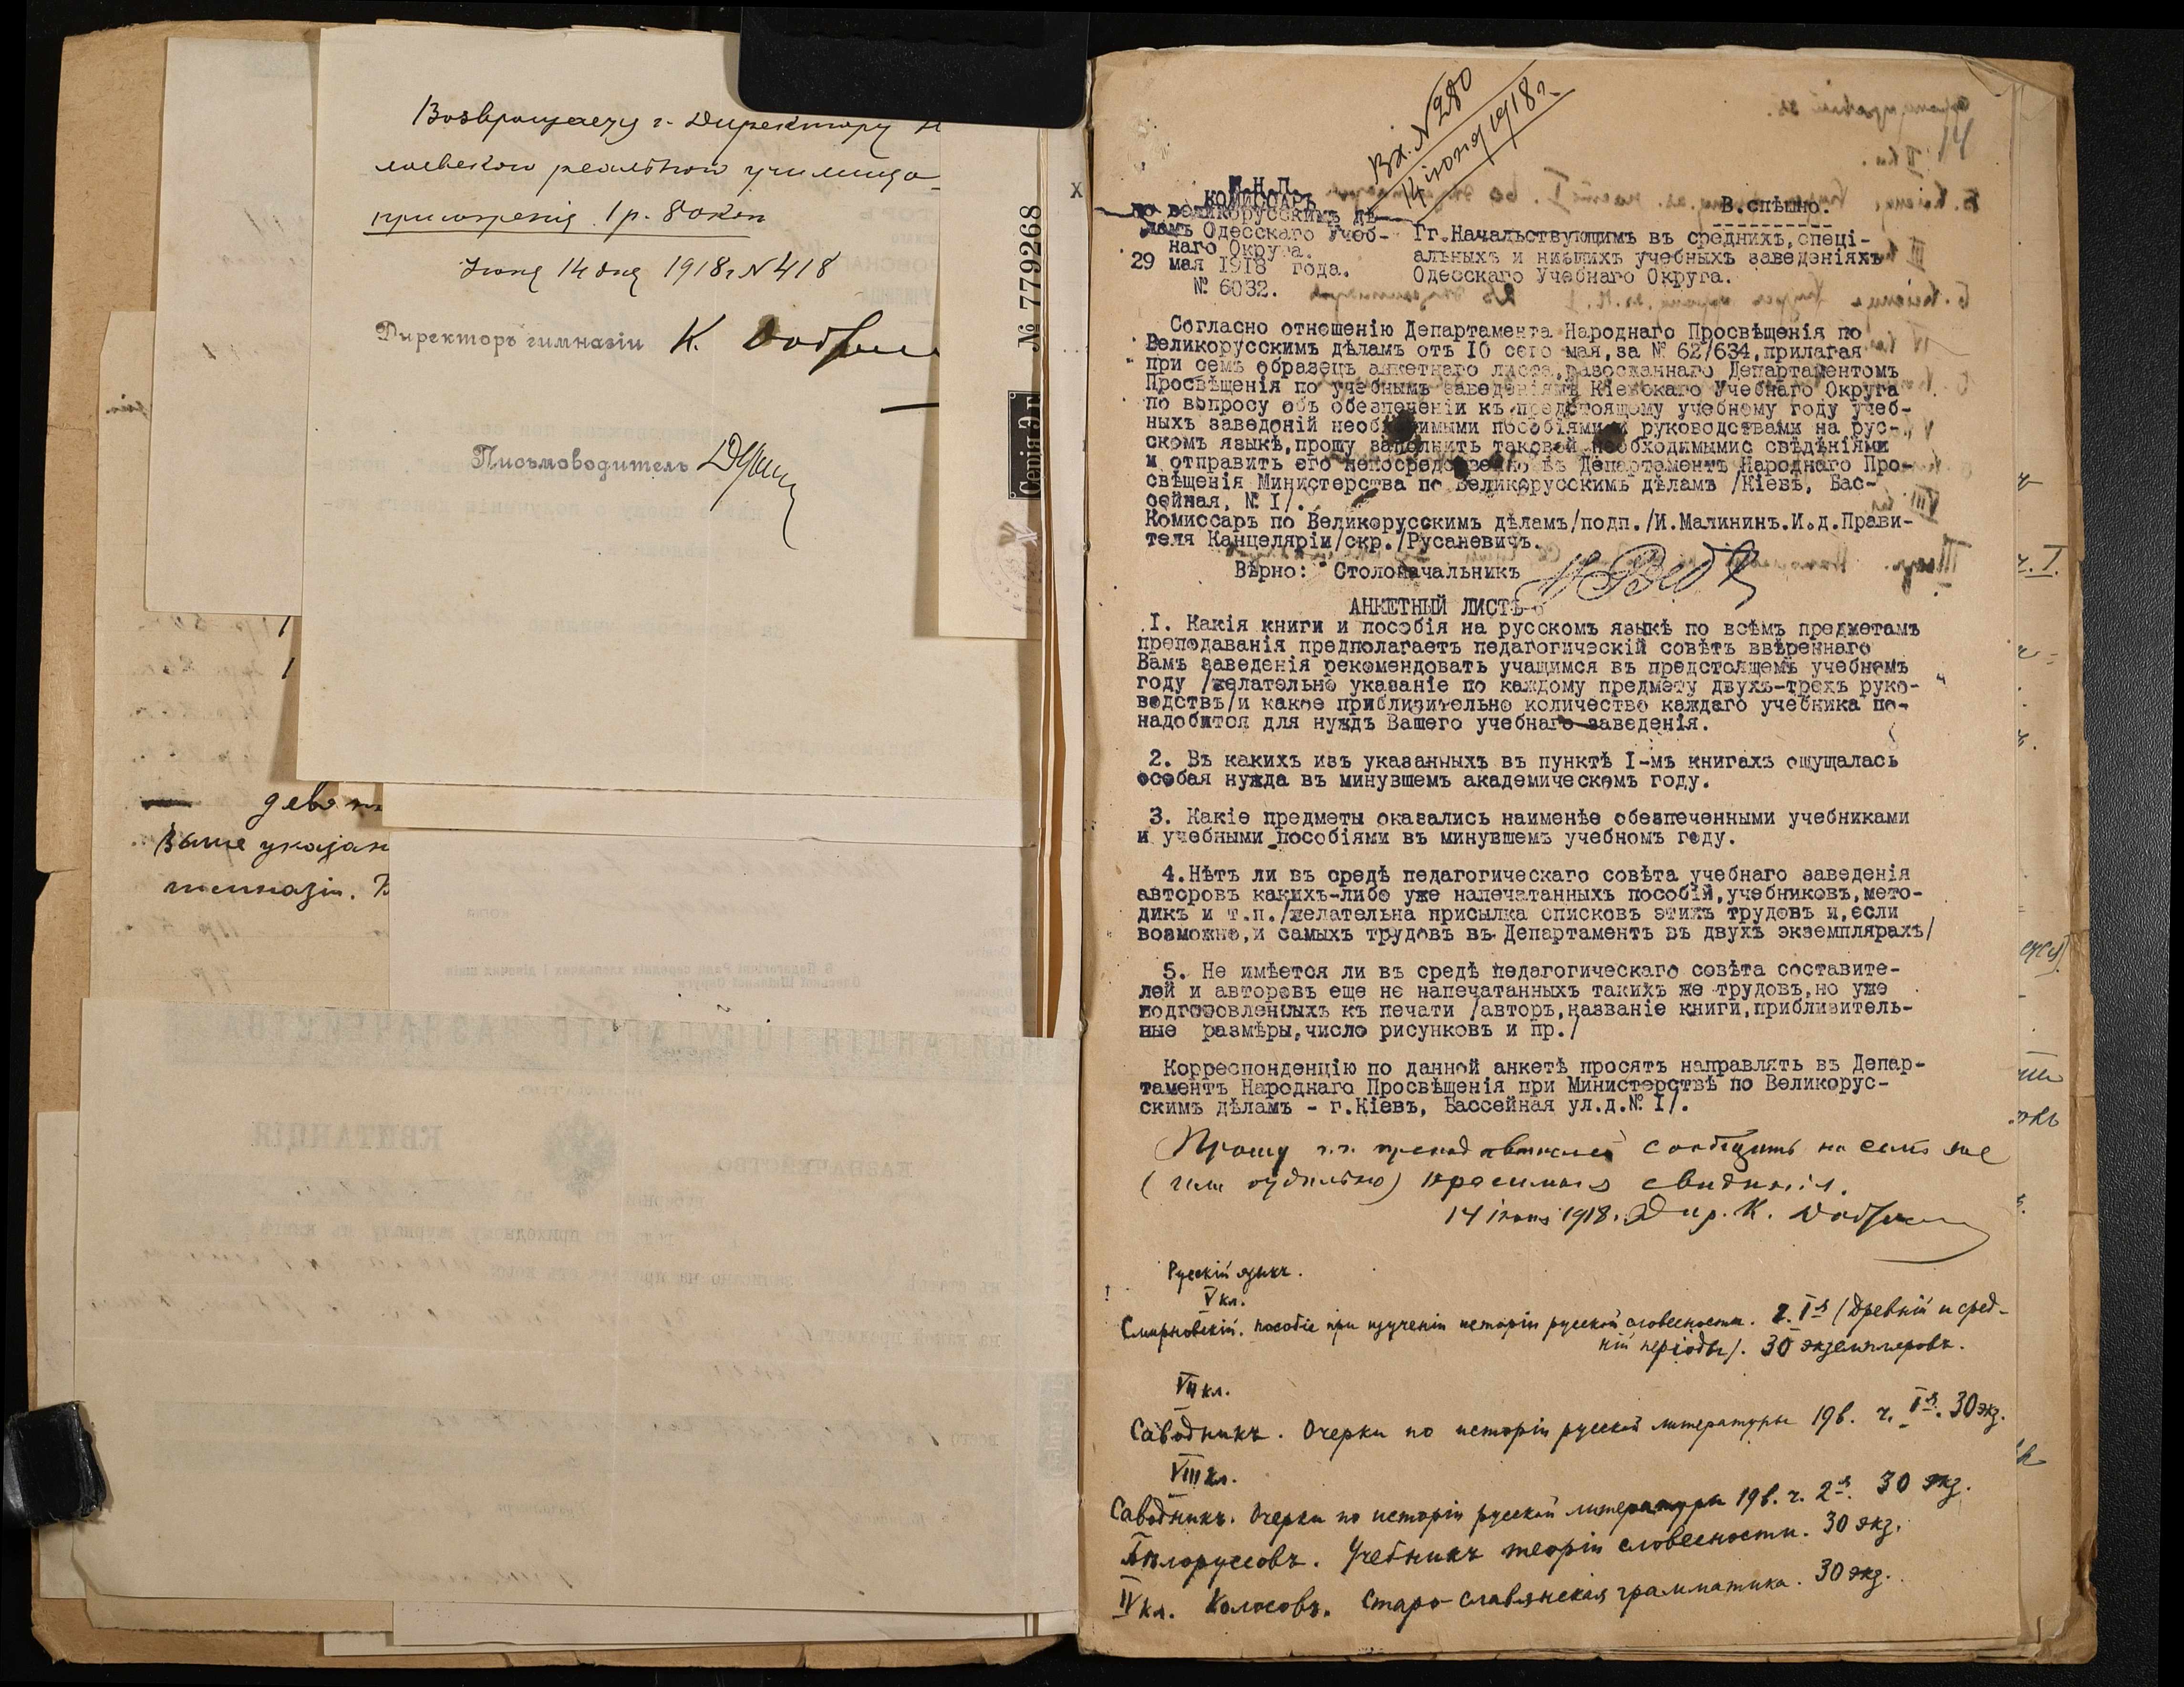 Возвращаету г. Директору
реальнаго училища
1 р. 80 коп
Іюня 14 дня 1918 г. № 418
Директоръ гимназіи К.
Письмоводитель
Выше указан
гимназіи.
№ 779268
Серія Э.Г
X
Вх. № 280
14 іюня 1918 г.
М.Н.П.
КОМИССАРЪ
по великорусскимъ дѣ-
ламъ Одесскаго Учеб-
наго Округа.
29 мая 1918 года.
№ 6032.
В.спѣшно.
Гг.Начальствующимъ въ среднихъ,спеці-
альныхъ и низшихъ учебныхъ заведеніяхъ
Одесскаго Учебнаго Округа.
Согласно отношенію Департамента Народнаго Просвѣщенія по
Великорусскимъ дѣламъ отъ 10 сего мая,за № 62/634,прилагая
при семъ образецъ анкетнаго листа,разосланнаго Департаментомъ
Просвѣщенія по учебнымъ заведеніямъ Кіевскаго Учебнаго Округа
по вопросу объ обезпеченіи къ предстоящему учебному году учеб-
ныхъ заведеній необходимыми пособіями и руководствами на рус-
скомъ языкѣ,прошу заполнить таковой необходимымис свѣдѣніями
и отправить его непосредственно въ Департаментъ Народнаго Про-
свѣщенія Министерства по Великорусскимъ дѣламъ /Кіевъ, Бас-
сейная, № I/.
Комиссаръ по Великорусскимъ дѣламъ/подп./И.Малининъ.И.д.Прави-
теля Канцеляріи/скр./Русаневичъ.
Вѣрно: Столоначальникъ
АНКЕТНЫЙ ЛИСТЪ
I. Какія книги и пособія на русскомъ языкѣ по всѣмъ предметамъ
преподаванія предполагаетъ педагогическій совѣтъ ввѣреннаго
Вамъ заведенія рекомендовать учащимся въ предстоящемъ учебномъ
году /желательно указаніе по каждому предмету двухъ-трехъ руко-
водствъ/и какое приблизительно количество каждаго учебника по-
надобится для нуждъ Вашего учебнаго заведенія.
2. Въ какихъ изъ указанныхъ въ пунктѣ I-мъ книгахъ ощущалась
особая нужда въ минувшемъ академическомъ году.
3. Какіе предметы оказались наименѣе обезпеченными учебниками
и учебными пособіями въ минувшемъ учебномъ году.
4.Нѣтъ ли въ средѣ педагогическаго совѣта учебнаго заведенія
авторовъ какихъ-либо уже напечатанныхъ пособій,учебниковъ,мето-
дикъ и т.п./желательна присылка списковъ этихъ трудовъ и,если
возможно,и самыхъ трудовъ въ Департаментъ въ двухъ экземплярахъ/
5. Не имѣется ли въ средѣ педагогическаго совѣта составите-
лей и авторовъ еще не напечатанныхъ такихъ же трудовъ,но уже
подготовленныхъ къ печати /авторъ,названіе книги,приблизитель-
ные размѣры,число рисунковъ и пр./
Корреспонденцію по данной анкетѣ просятъ направлять въ Депар-
таментъ Народнаго Просвѣщенія при Министерствѣ по Великорус-
скимъ дѣламъ - г.Кіевъ, Бассейная ул.д.№ I/.
Прошу г.г. преподавателей сообщить на семъ же
(или отдѣльно) просимыя свѣдѣнія.
14 іюня 1918. Дир. К.
Русскій языкъ.
V кл.
Смирновскій. Пособіе при изученіи исторіи русской словесности. ч. I-я (Древній и сред-
ній періоды). 30 экземпляровъ.
VII кл.
Саводникъ. Очерки по исторіи русской литературы 19 в. ч. I-я. 30 экз.
VIII кл.
Саводникъ. Очерки по исторіи русской литературы 19 в. ч. 2-я. 30 экз.
Бѣлоруссовъ. Учебникъ теоріи словесности. 30 экз.
IV кл. Колосовъ. Старо-славянская грамматика. 30 экз.